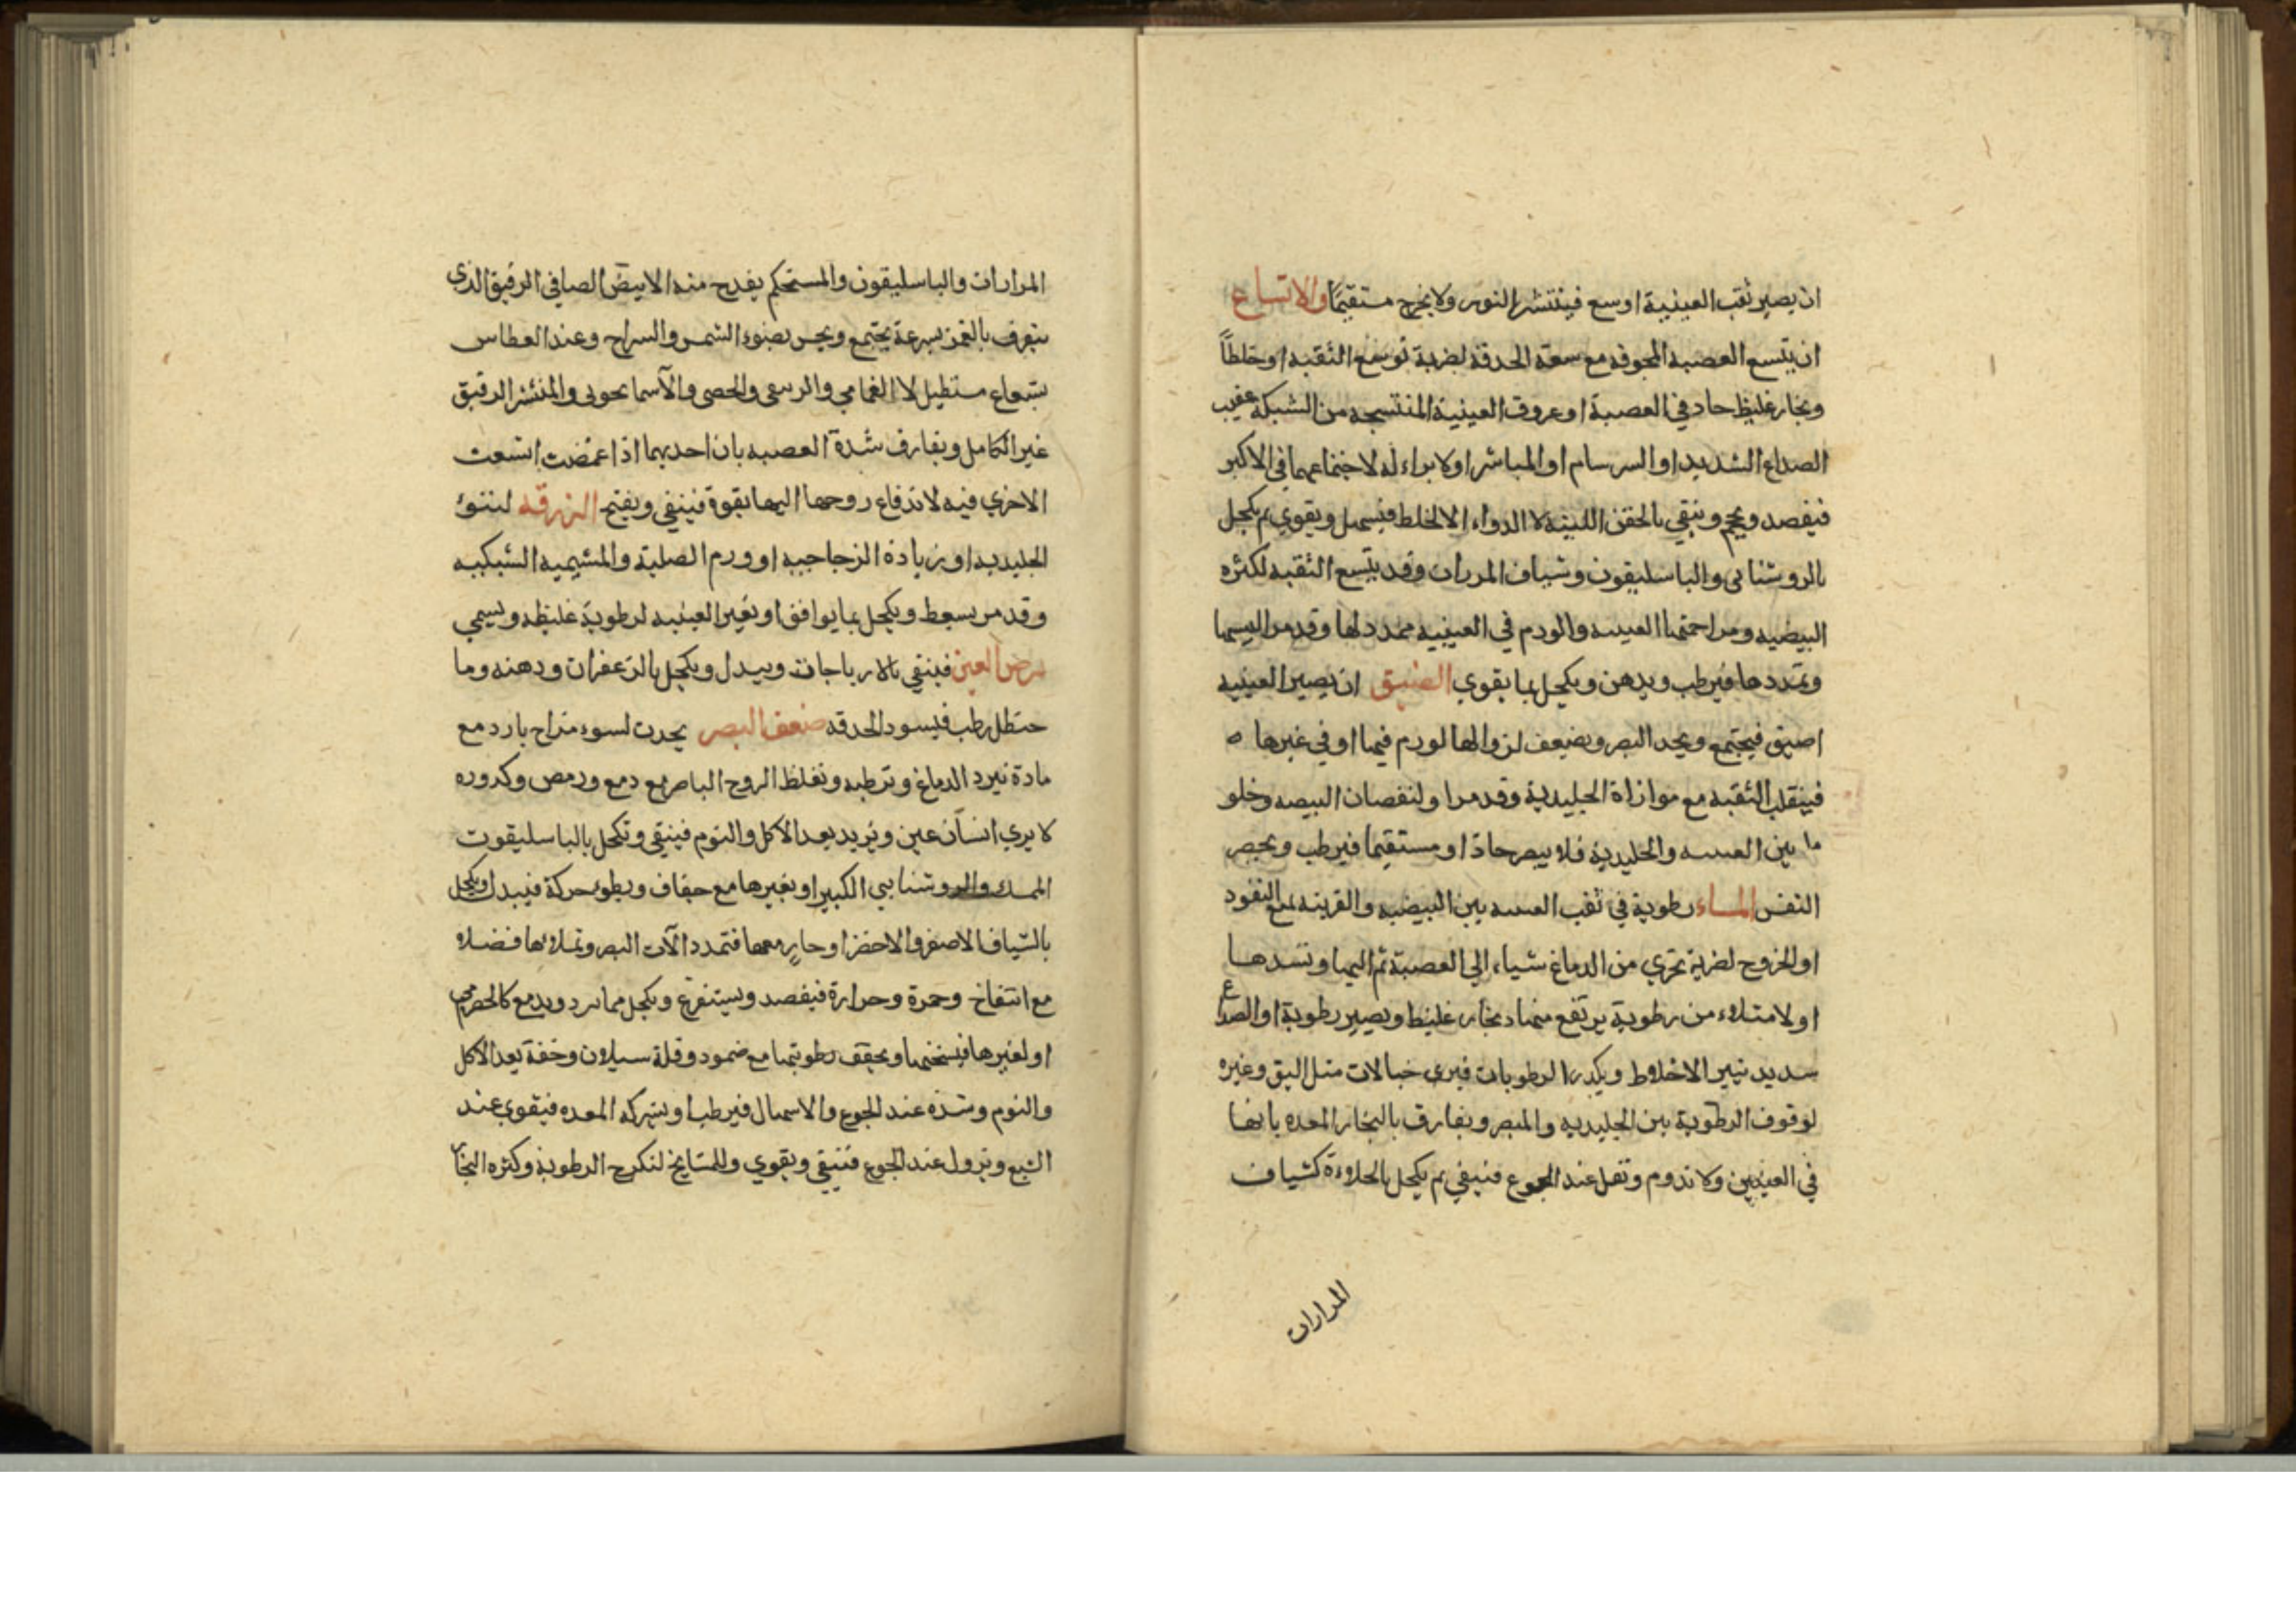 ان يصير ثقب العينية اوسع فينتشر النور ولا يخرج مستقيمًا والاتساع
ان يتسع العصبه المجوفه مع سعة الحدقة لضربة توسع الثقبه او خلطاً
وبخار غليظ حاد في العصبة او عروق العينية المنتسجه من الشبكه عقيب
الصداع الشديد او السرسام او المباشر اولا براء له لاجتماعهما في الاكبر
فيفصد ويحجم وينقي بالحقن اللينه لا الدواء الا لخلط فيسهل ويقوي ثم يكحل
بالروشنايي والباسليقون وشياف المررات وقد يتسع الثقبه لكثره
البيضيه ومزاحمتها العينيه والورم في العينيه ممدد لها وقد مر
وتمددها فيرطب ويدهن ويكحل بما يقوي الضيق ان يصير العينيه
اضيق فيجتمع ويحد البصر ويضيعف لزوالها لورم فيها او في غيرها ه
فينقلب الثقبه مع موازاة الجليدية وقد مر او لنقصان البيضه وخلو
ما بين العينيه والجليدية فلا يبصر حادا او مستقيما فيرطب ويحصر
النفس الماء رطوبة في ثقب العينيه بين البيضيه والقرنيه تمنع النفود
او الخروج لضربة تحري من الدماغ شياء الي العصبة ثم اليها وتسدها
او لامتلاء من رطوبة يرتفع منها بخار غليظ ويصير رطوبة او الصداع
سديد تثير الاخلاط ويكدر الرطوبات فيرى خيالات مثل البق وغيره
لوقوف الرطوبة بين الجليديه والمبصر ويفارق بالبخار المعده بانها
في العينين ولا تدوم وتقل عند الجوع فينقي ثم يكحل بالجلاءة كشياف
المرارات
المرارات والباسليقون والمستحكم يقدح منه الابيض الصافي الرقيق الذى
يتفرق بالغمز بسرعة يجتمع ويحس بضوء الشمس والسراج وعند العطاس
بشعاع مستطيل لا الغمامي والحصى والاسمانحوني والمنتشر الرقيق
غير الكامل ويفارق شدة العصبه بان احديهما اذا غمضت اتسعت
الاخري فيه لاندفاع روحها اليها بقوة فينقي ويفتح الزرقه لنتوء
الجليديه او زيادة الزجاجيه او ورم الصلبة والمشيميه الشبكيه
وقد مر يسعط ويكحل بما يوافق او تغير العينيه لرطوبة غليظه ويسمي
برص العين فينقي بالارياجات ويبدل ويكحل بالزعفران ودهنه وما
حنظل رطب فيسود الحدقه ضعف البصر يحدث لسوء مزاج بارد مع
مادة تبرد الدماغ وترطبه وتغلظ الروح الباصر مع دمع ورمص وكدوره
لا يري انسان عين ويزيد بعد الاكل والنوم فينقي وتكحل بالباسليقوت
الممسك والروشنايي الكبير او بغيرها مع جفاف وبطوء حركة فيبدل ويكحل
بالشياف الاصفر والاخضر او حار معها فتمدد الآت البصر وتملاءها فضله
مع انتفاخ وحمرة وحرارة فيفصد ويستفرغ ويكحل مما برد ويدمع كالحصرمي
او لغيرها فيسخنها ويجفف رطوبتها مع ضمود وقلة سيلان وخفة بعد الاكل
والنوم وشده عند الجوع والاسهال فيرطب او بشركه المعده فيقوي عند
الشبع ويزول عند الجوع فتنقي ويقوي وللمشايخ لتكرج الرطوبة وكثره البخار